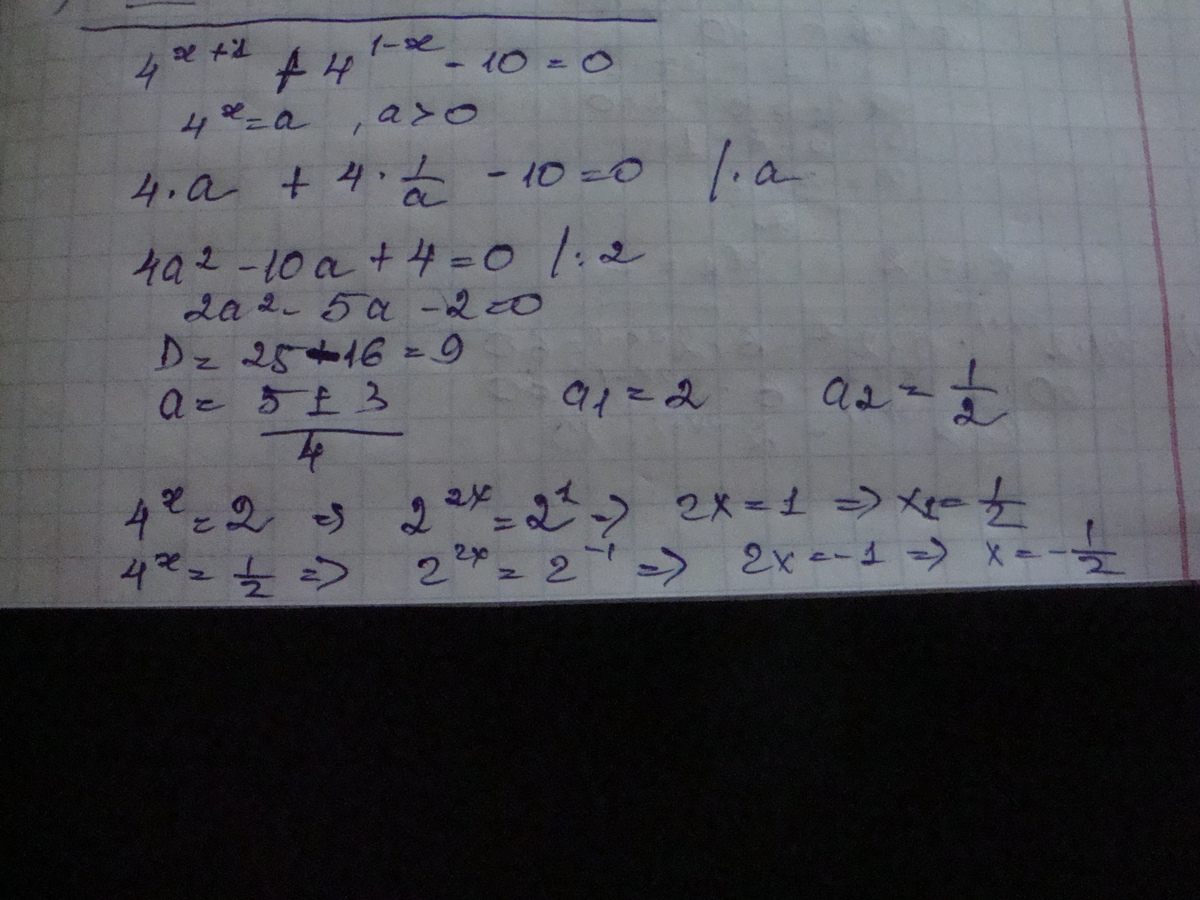 4^{x+1} + 4^{1-x} - 10 = 0
4^x = a , a > 0
4 · a + 4 · 1/a - 10 = 0 /· a
4a² - 10a + 4 = 0 /: 2
2a² - 5a - 2 = 0
D = 25 - 16 = 9
a = (5 ± 3)/4 a₁ = 2 a₂ = 1/2
4^x = 2 ⇒ 2^{2x} = 2^1 ⇒ 2x = 1 ⇒ x₁ = 1/2
4^x = 1/2 ⇒ 2^{2x} = 2^{-1} ⇒ 2x = -1 ⇒ x = -1/2